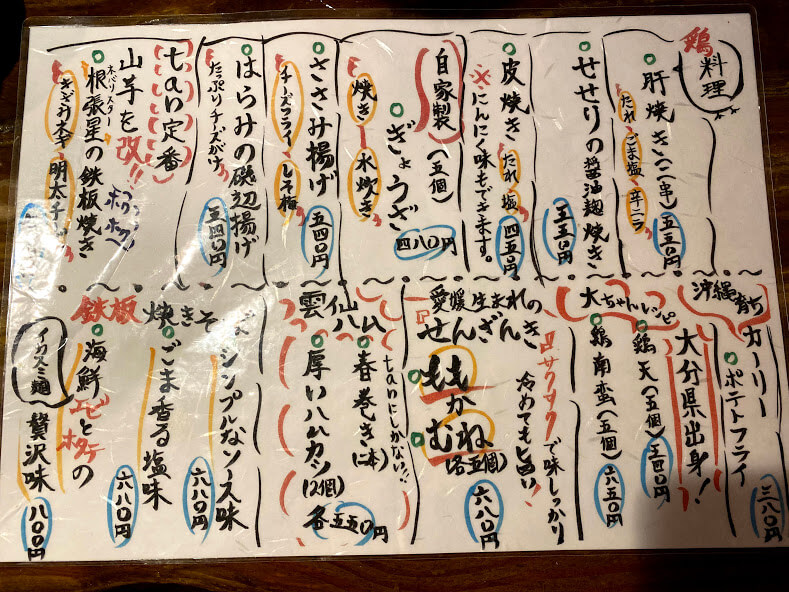 鶏料理
肝焼き(二串)
たれ ごま塩 辛ニラ
五五〇円
せせりの醤油麹焼き
五五〇円
皮焼き たれ 塩
※にんにく味もできます。
四五〇円
自家製(五個)
ぎょうざ
焼き 水炊き
四八〇円
ささみ揚げ
チーズフライ しそ梅
五四〇円
はらみの磯辺揚げ
たっぷりチーズがけ
五四〇円
tan定番
山芋を改!!
ネバリスター
根張星の鉄板焼き
ホクホク
きざみネギ 明太チーズ
沖縄育ち
カーリー
ポテトフライ
三八〇円
大ちゃんレシピ
大分県出身!
鶏天(五個)
五四〇円
鶏南蛮(五個)
六五〇円
愛媛生まれの
せんざんき
サクサクで味しっかり
冷めても旨い!
ももか
むね
(各五個)
六八〇円
雲仙ハム
tanにしかない!!
春巻き(二本)
厚いハムカツ(2個)
各五五〇円
鉄板焼きそば
シンプルなソース味
六八〇円
ごま香る塩味
六八〇円
海鮮エビとホタテの
イカスミ麺 贅沢味
八〇〇円